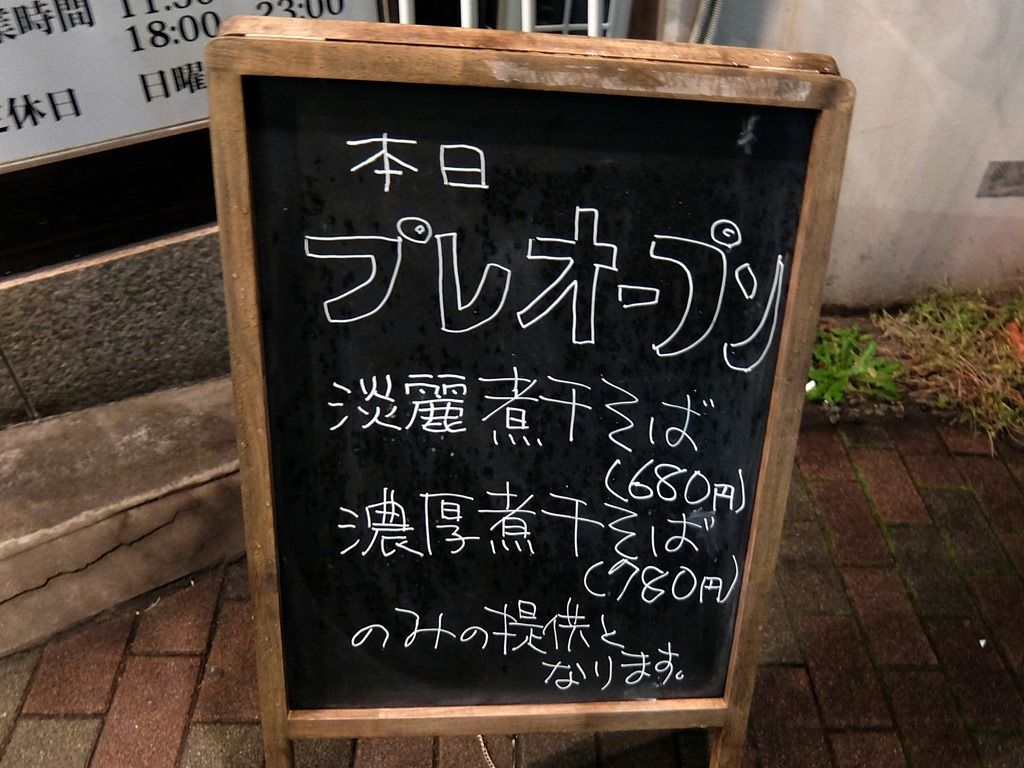 業時間 11:30
18:00 23:00
定休日 日曜
本日
プレオープン
淡麗煮干そば
(680円)
濃厚煮干そば
(780円)
のみの提供と
なります。